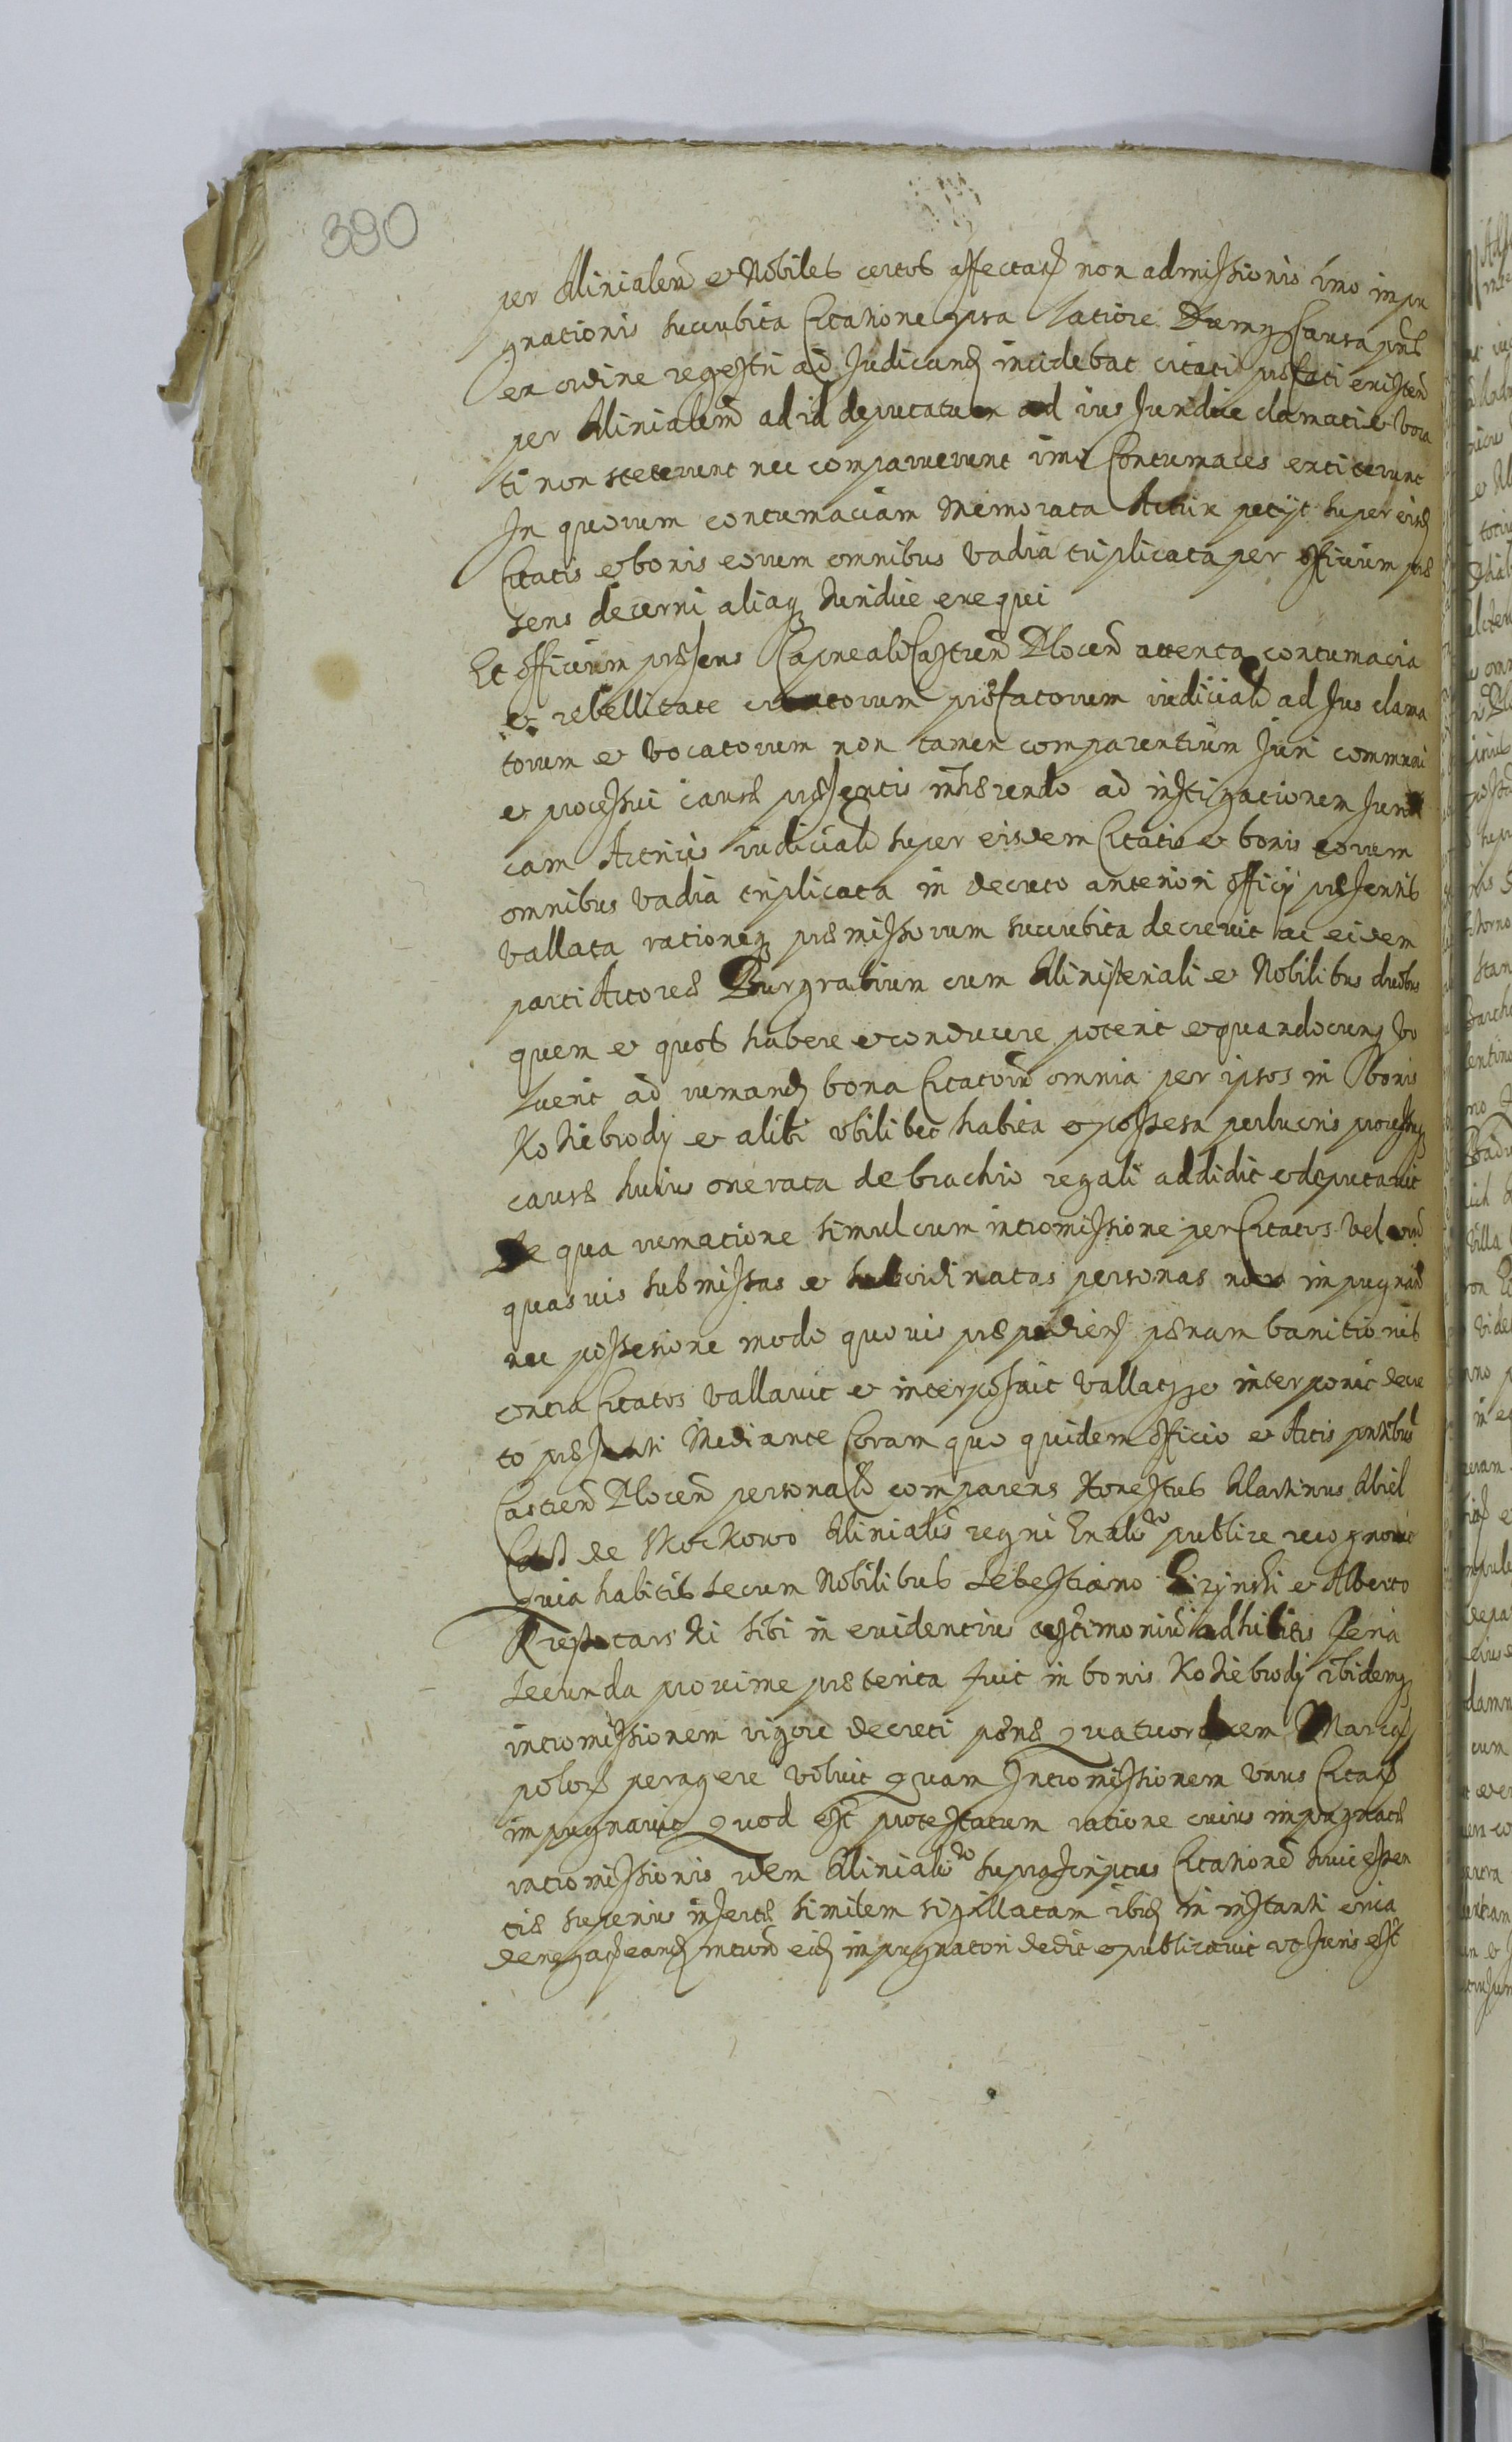 390
per Minialem et Nobiles certos affectatæ non admissionis imo impu
gnationis succubita Citatione ipsa latiore Dumq Causa pns
ex ordine regestri ad Judicand incidebat citati præfati existen
per Minialem ad id deputatum ad ius Juridice clamati et voca
ti non steterunt nec comparuerunt imo Contumaces extiterunt
In quorum contumaciam Memorata Actrix petijt super eisd
Citatis et bonis eorum omnibus vadia triplicata per officium præ
sens decerni aliaq Juridice exequi
Et officium præsens Capneale Castren Plocen attenta contumacia
et rebellitate citatorum præfatorum iudicial ad Jus clama
torum et vocatorum non tamen comparentium Juri communi
et processui causæ præsentis inhærendo ad instigationem Juridi
cam Actricis iudicial super eisdem Citatis et bonis eorum
omnibus vadia triplicata in decreto anteriori officij præsentis
vallata rationeq præmissorum succubita decrevit ac eidem
parti Actoreæ Burgrabium cum Ministeriali et Nobilibus duobus
quem et quos habere et conducere poterit et quandocunq vo
luerit ad rumand bona Citatorum omnia per ipsos in bonis
Koziebrody et alibi ubilibet habita et possessa perlucris processuq
causæ huius onerata de brachio regali addidit et deputavit
De qua rumatione simul cum intromissione per Citatos vel eorum
quasvis submissas et subordinatas personas non impugnand
nec possesione modo quovis præpediend pænam banitionis
contra Citatos vallavit et interposuit vallatq et interponit decre
to præsenti Mediante Coram quo quidem officio et Actis pntibus
Castren Plocen personal comparens Honestus Martinus Miel
de Mockowo Minialis regni Gnalis publice recognovit
quia habitis secum Nobilibus Sebestiano et Alberto
sibi in evidentius testimonium adhibitis Feria
secunda proxime præterita fuit in bonis Koziebrody ibidemq
intromissionem vigore decreti pænæ quatuordecem Marcar
polon peragere voluit quam Intromissionem unus Citator
impugnavit Quod est protestatum ratione cuius impugnatæ
intromissionis idem Minialis suprascriptus Citationem huic essen
tiæ superius insertæ similem sigillatam ibid in instanti circa
denegat eand introm eid impugnatori dedit et publicavit ut Juris est